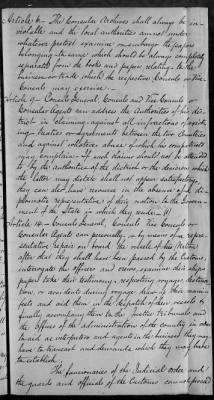 Article 6 – The Consular Archives shall always be in-
violable and the local authorities cannot under
whatever pretext examine or embargo the papers
belonging to same which should be always completely
separated from the books and papers relating to the
business or trade which the respective Consuls or Vice
Consuls may exercise.
Article 9 – Consuls General, Consuls and Vice Consuls or
Consular Agents may address the Authorities of their dis-
trict in claiming against all infraction of exist-
ing treaties or agreements between the two Countries
and against whatever abuse of which his compatriots
may complain. If such claims should not be attended
to by the authorities of the District or the decision which
the latter may dictate shall not appear satisfactory,
they can also have recourse in the absence of a di-
plomatic representative of their nation to the Govern-
ment of the State in which they reside.
Article 14 – Consuls General, Consuls, Vice Consuls or
Consular Agents can personally or by means of a repre-
sentative repair on board the vessels of their Nation
after that they shall have been passed by the Customs,
interrogate the officers and crews, examine the ships
papers take their testimony respecting voyage, destina-
tion, or accidents during voyage, draw up their mani-
fests and aid them in the despatch of their vessels &
finally accompany them to the justice tribunals and
the offices of the administrations of the country in or
to act as interpreters and agents in the business they may
have to transact and demands which they may have
to establish.
The functionaries of the Judicial order and
the guards and officials of the Customs cannot proceed